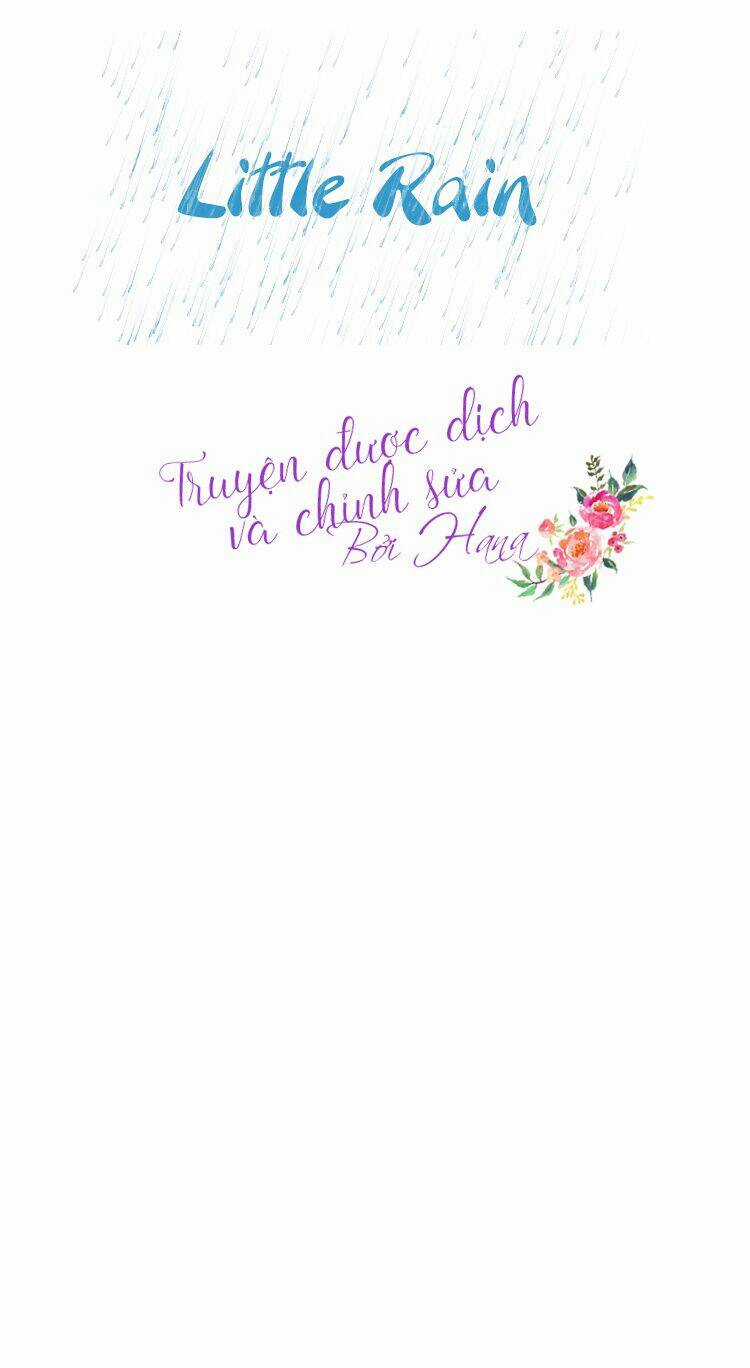 Little Rain
Truyện được dịch
và chỉnh sửa
Bởi Hana